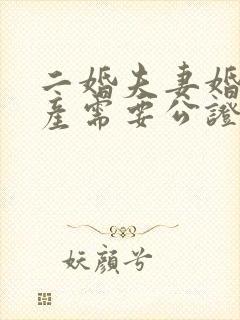 二婚夫妻婚
産需要公證
妖顔兮